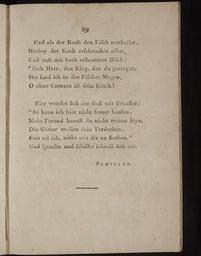 29
Und als der Koch den Fisch zertheilet,
Herbey der Koch erschrocken eilet,
Und ruft mit hoch erstauntem Blick:
"Sieh Herr, den Ring, den du getragen,
Ihn fand ich in des Fisches Magen,
O ohne Grenzen ist dein Glück!"
Hier wendet sich der Gast mit Grausen:
"So kann ich hier nicht ferner hausen,
Mein Freund kannst du nicht weiter seyn,
Die Götter wollen dein Verderben,
Fort eil ich, nicht mit dir zu sterben."
Und sprachs und schiffte schnell sich ein.
SCHILLER.